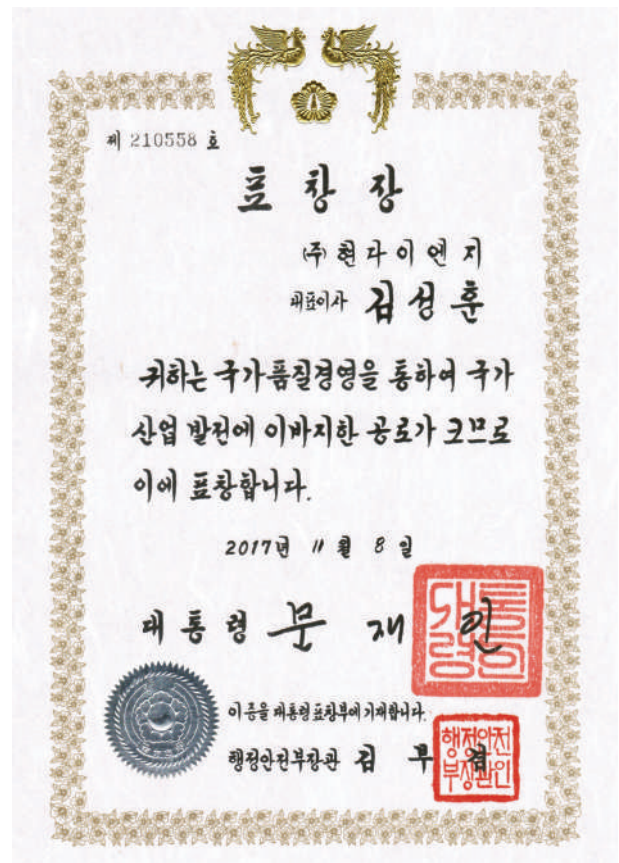 제 210558 호
표창장
(주) 현다이엔지
대표이사 김성훈
귀하는 국가품질경영을 통하여 국가
산업 발전에 이바지한 공로가 크므로
이에 표창합니다.
2017년 11월 8일
대통령 문재인
대통령의인
이 증을 대통령표창부에 기재합니다.
행정안전부장관 김부겸
행정안전부장관인